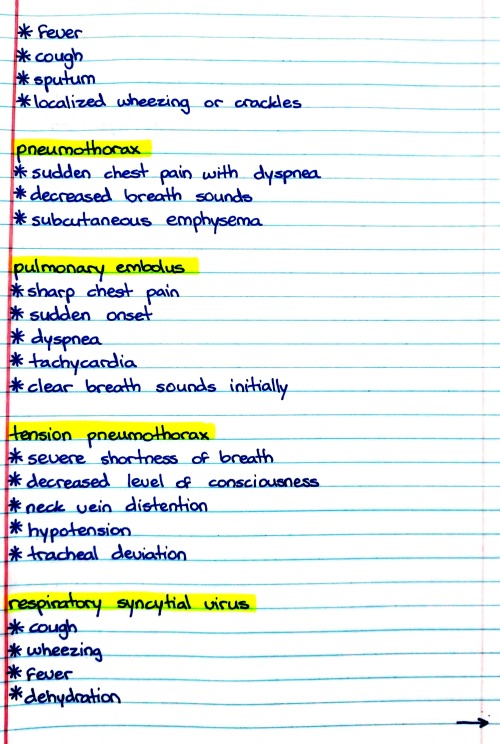 * fever
* cough
* sputum
* localized wheezing or crackles
pneumothorax
* sudden chest pain with dyspnea
* decreased breath sounds
* subcutaneous emphysema
pulmonary embolus
* sharp chest pain
* sudden onset
* dyspnea
* tachycardia
* clear breath sounds initially
tension pneumothorax
* severe shortness of breath
* decreased level of consciousness
* neck vein distention
* hypotension
* tracheal deviation
respiratory syncytial virus
* cough
* wheezing
* fever
* dehydration
→